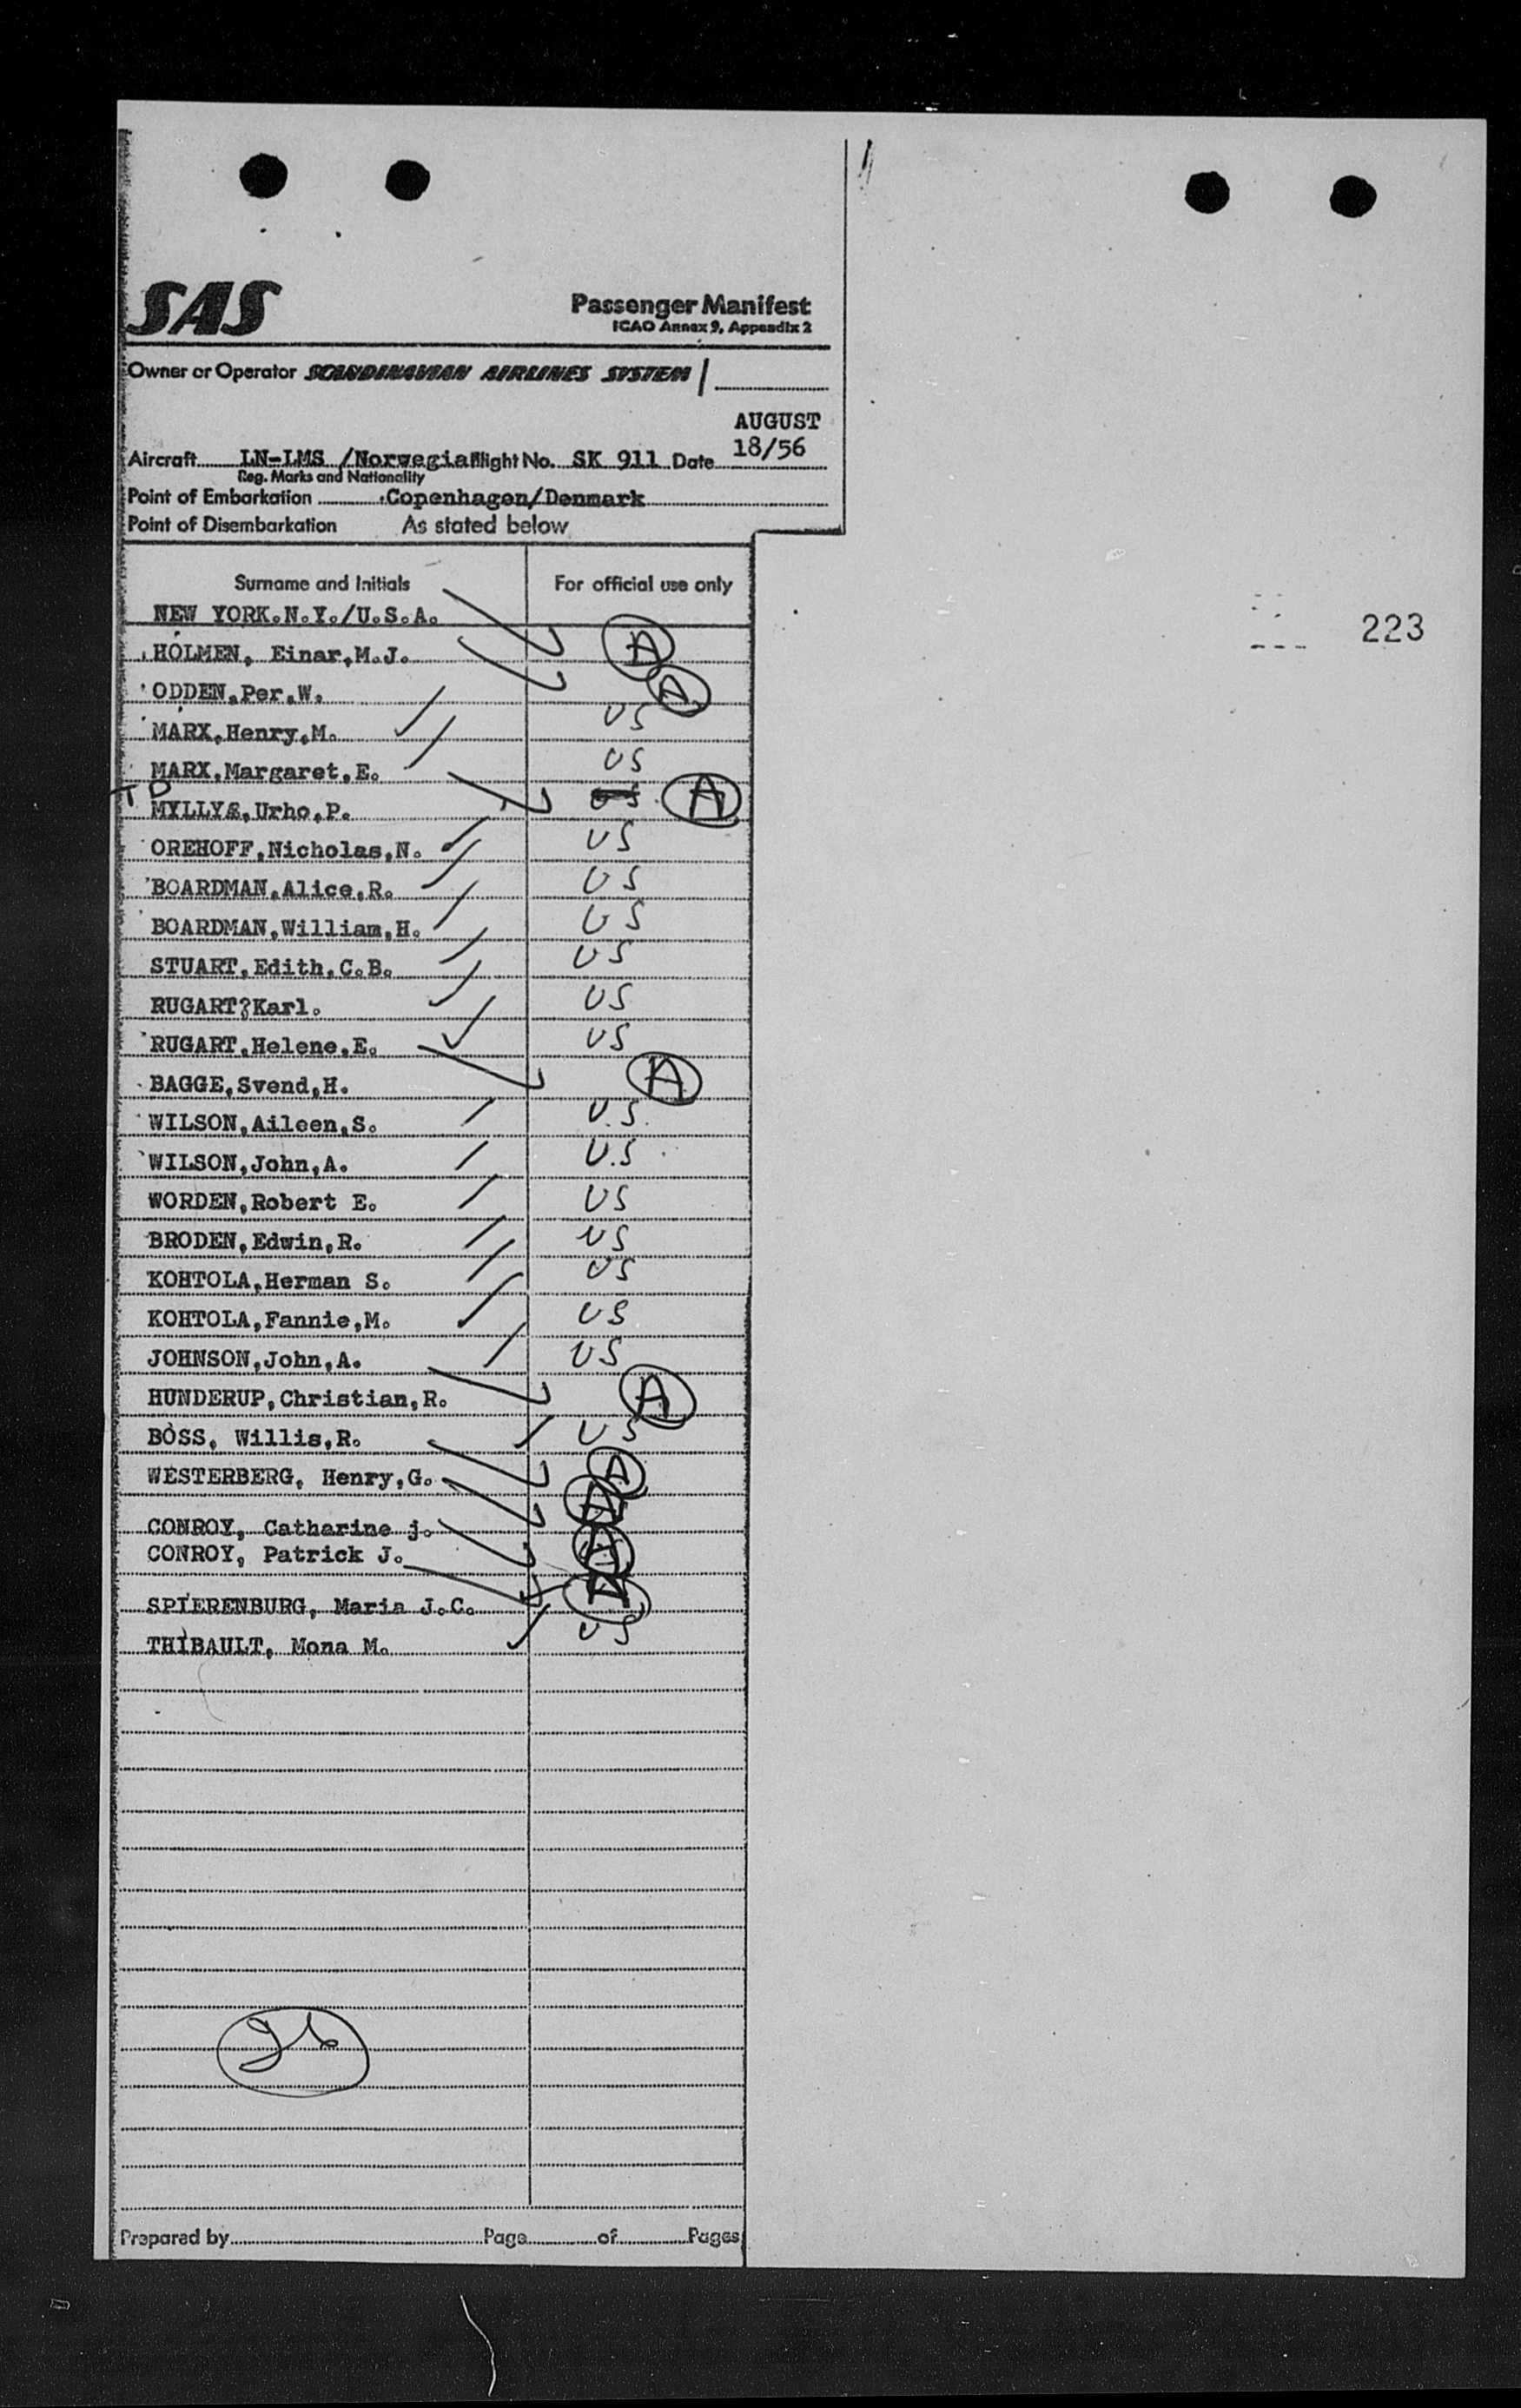 SAS
Passenger Manifest
ICAO Annex 9, Appendix 2
Owner or Operator SCANDINAVIAN AIRLINES SYSTEM
AUGUST
Aircraft LN-LMS /Norwegian Flight No. SK 911 Date 18/56
Reg. Marks and Nationality
Point of Embarkation Copenhagen/Denmark
Point of Disembarkation As stated below
Surname and Initials For official use only
NEW YORK.N.Y./U.S.A.
223
HOLMEN, Einar,M.J. A
ODDEN,Per,W. A
MARX,Henry,M. US
MARX,Margaret,E. US
TD
MYLLYÆ,Urho,P. US A
OREHOFF,Nicholas,N. US
BOARDMAN,Alice,R. US
BOARDMAN,William,H. US
STUART,Edith,C.B. US
RUGART?Karl. US
RUGART,Helene,E. US
BAGGE,Svend,H. A
WILSON,Aileen,S. U.S.
WILSON,John,A. U.S.
WORDEN,Robert E. US
BRODEN,Edwin,R. US
KOHTOLA,Herman S. US
KOHTOLA,Fannie,M. US
JOHNSON,John,A. US
HUNDERUP,Christian,R. A
BOSS, Willis,R. US
WESTERBERG, Henry,G. A
CONROY, Catharine j. A
CONROY, Patrick J. A
SPIERENBURG, Maria J.C. A
THIBAULT, Mona M. US
Prepared by Page of Pages